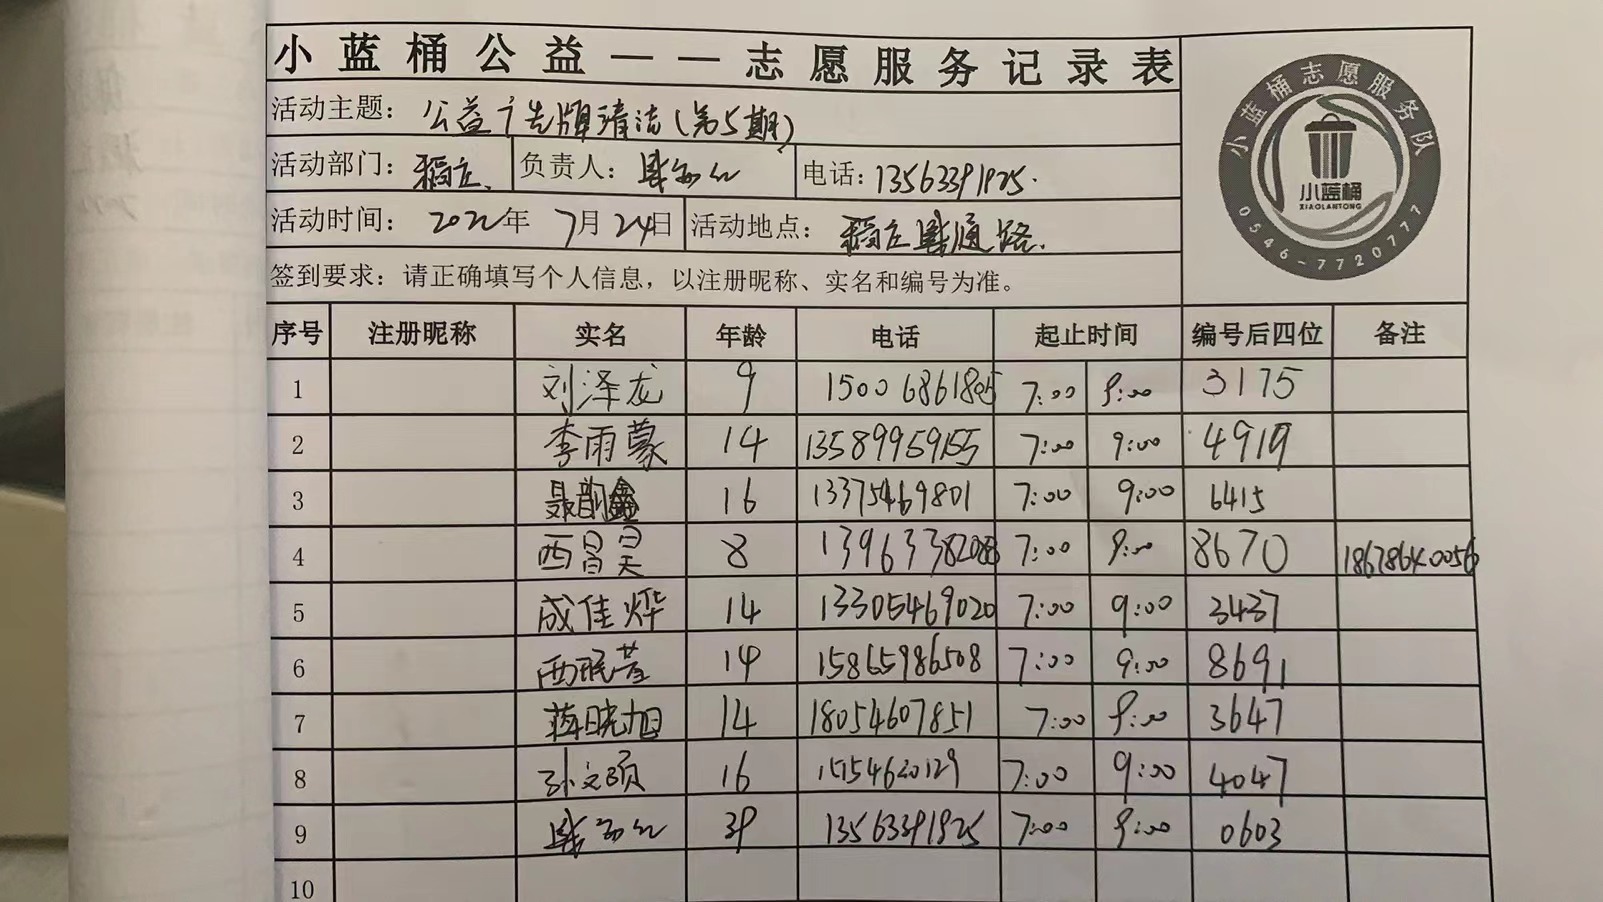 小蓝桶公益——志愿服务记录表
小蓝桶志愿服务队
小蓝桶
XIAOLANTONG
0546-7720777
活动主题：公益广告牌清洁（第5期）
活动部门：稻庄. 负责人： 电话：13563391925.
活动时间：2022年 7月24日 活动地点：稻庄 通路.
签到要求：请正确填写个人信息，以注册昵称、实名和编号为准。
序号 注册昵称 实名 年龄 电话 起止时间 编号后四位 备注
1 刘泽龙 9 15006861805 7:00 9:00 3175
2 李雨蒙 14 13589959155 7:00 9:00 4919
3 聂韵鑫 16 13375469801 7:00 9:00 6415
4 西昌昊 8 7:00 9:00 8670
5 成佳烨 14 13305469020 7:00 9:00 3437
6 西珉萱 14 15865986508 7:00 9:00 8691
7 蒋晓旭 14 18054607851 7:00 9:00 3647
8 孙文硕 16 15154620129 7:00 9:00 4047
9 39 13563391925 7:00 9:00 0603
10